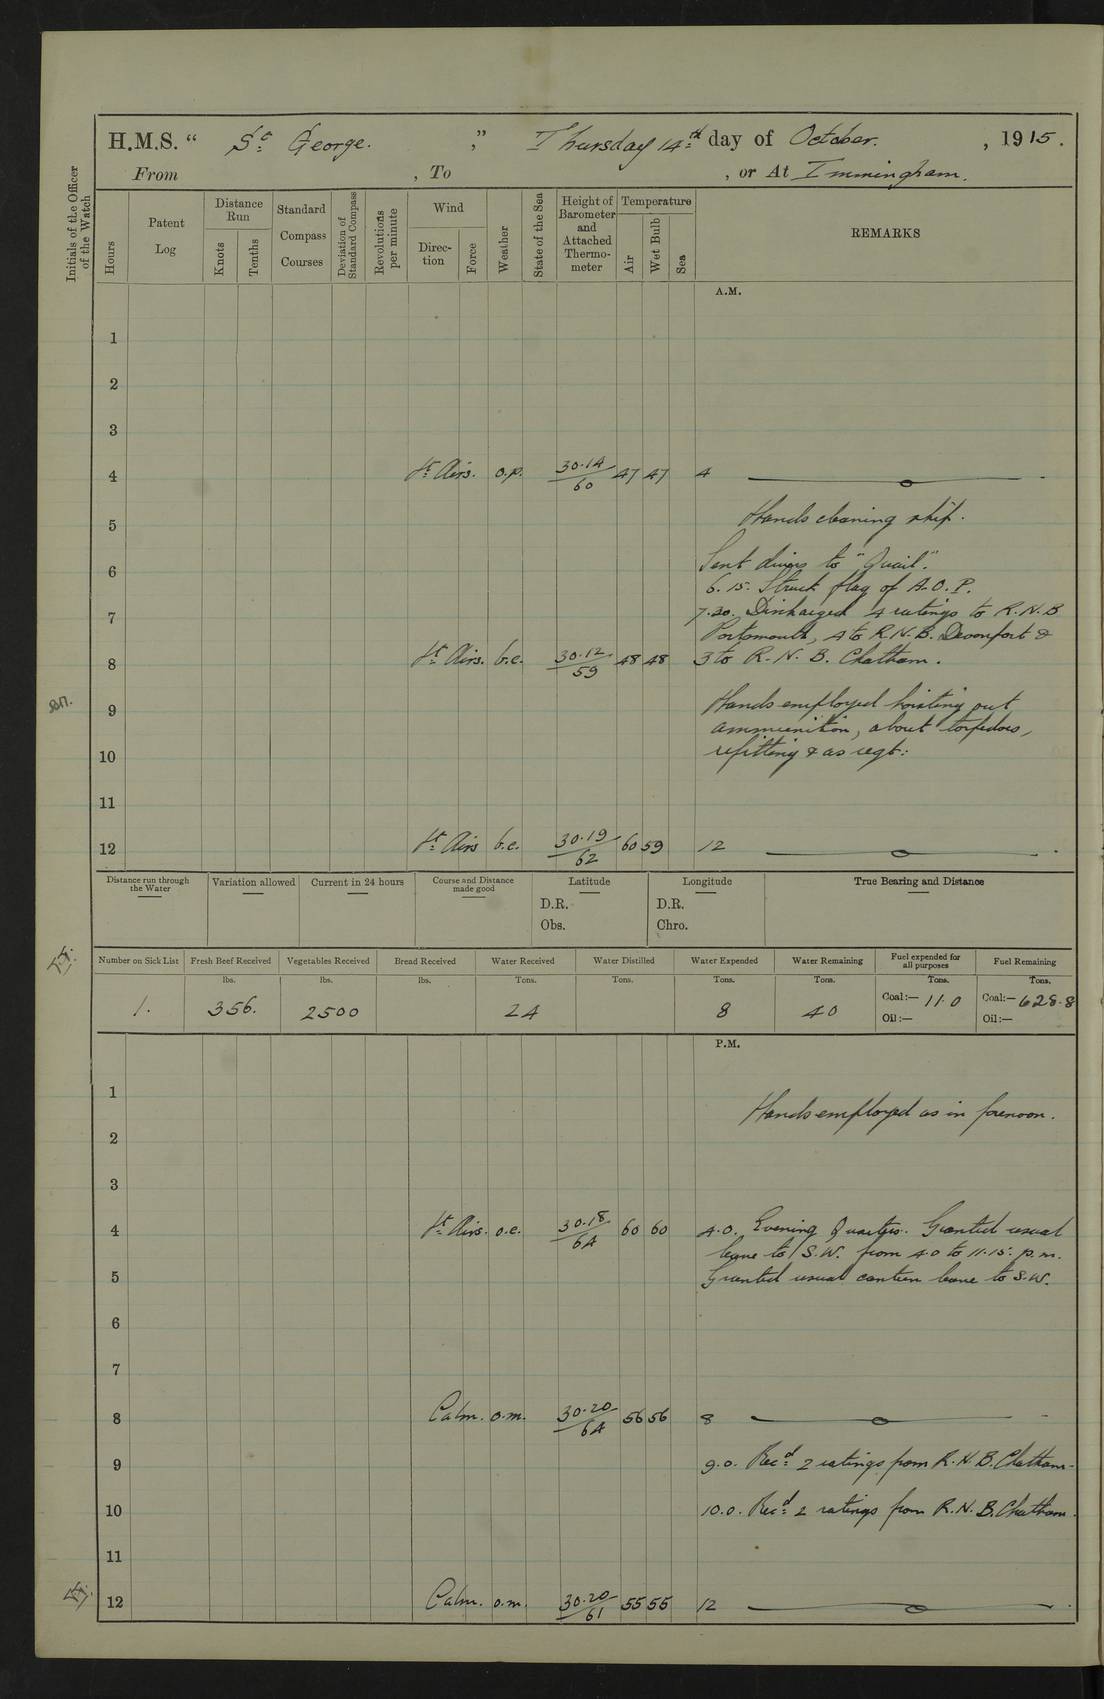 H.M.S. " St George. ," Thursday 14th day of October. , 1915.
From , To , or At Immingham.
Initials of the Officer of the Watch
Hours
Patent Log
Distance Run
Knots
Tenths
Standard Compass Courses
Deviation of Standard Compass
Revolutions per minute
Wind
Direction
Force
Weather
State of the Sea
Height of Barometer and Attached Thermometer
Temperature
Air
Wet Bulb
Sea
REMARKS
A.M.
1
2
3
4 Lt Airs. o.p. 30.14/60 47 47 4
5 Hands cleaning ship.
6 Sent divers to "Quail".
6.15. Struck flag of A.O.P.
7 7.30. Discharged 4 ratings to R.N.B
Portsmouth, 4 to R.N.B. Devonport &
8 Lt Airs. b.c. 30.12/59 48 48 3 to R.N.B. Chatham.
9 Hands employed hoisting out
ammunition, about torpedoes,
10 refitting & as reqt:
11
12 Lt Airs b.c. 30.19/62 60 59 12
Distance run through the Water
Variation allowed
Current in 24 hours
Course and Distance made good
Latitude
D.R.
Obs.
Longitude
D.R.
Chro.
True Bearing and Distance
Number on Sick List
1.
Fresh Beef Received
lbs.
356.
Vegetables Received
lbs.
2500
Bread Received
lbs.
Water Received
Tons.
24
Water Distilled
Tons.
Water Expended
Tons.
8
Water Remaining
Tons.
40
Fuel expended for all purposes
Tons.
Coal:— 11.0
Oil:—
Fuel Remaining
Tons.
Coal:— 628.8
Oil:—
P.M.
1 Hands employed as in forenoon.
2
3
4 Lt Airs. o.c. 30.18/64 60 60 4.0. Evening Quarters. Granted usual
leave to S.W. from 4.0 to 11.15. p.m.
5 Granted usual canteen leave to S.W.
6
7
8 Calm. o.m. 30.20/64 56 56 8
9 9.0. Recd 2 ratings from R.N.B. Chatham
10 10.0. Recd 2 ratings from R.N.B. Chatham.
11
12 Calm. o.m. 30.20/61 55 55 12